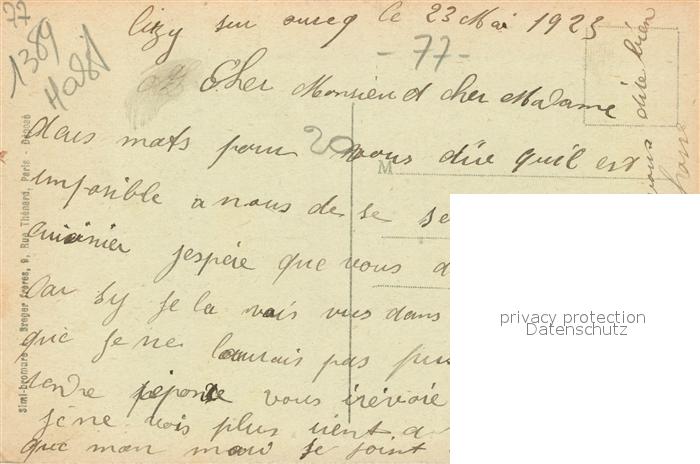 77
1389
Lizy sur ourcq le 23 Mai 1923
- 77 -
Cher Monsieur et cher Madame
deus mots pour vous dire quil est
20
M
imposible a nous de se se
cuisinier jespére que vous d
Car sy je la vais vus dans
que je ne laurais pas
tendre réponse vous
je ne vois plus rient a
que mon mari se joint
vous dite bien
Simi-bromure - Breger Frères, 9, Rue Thénard, Paris - Déposé
privacy protection
Datenschutz